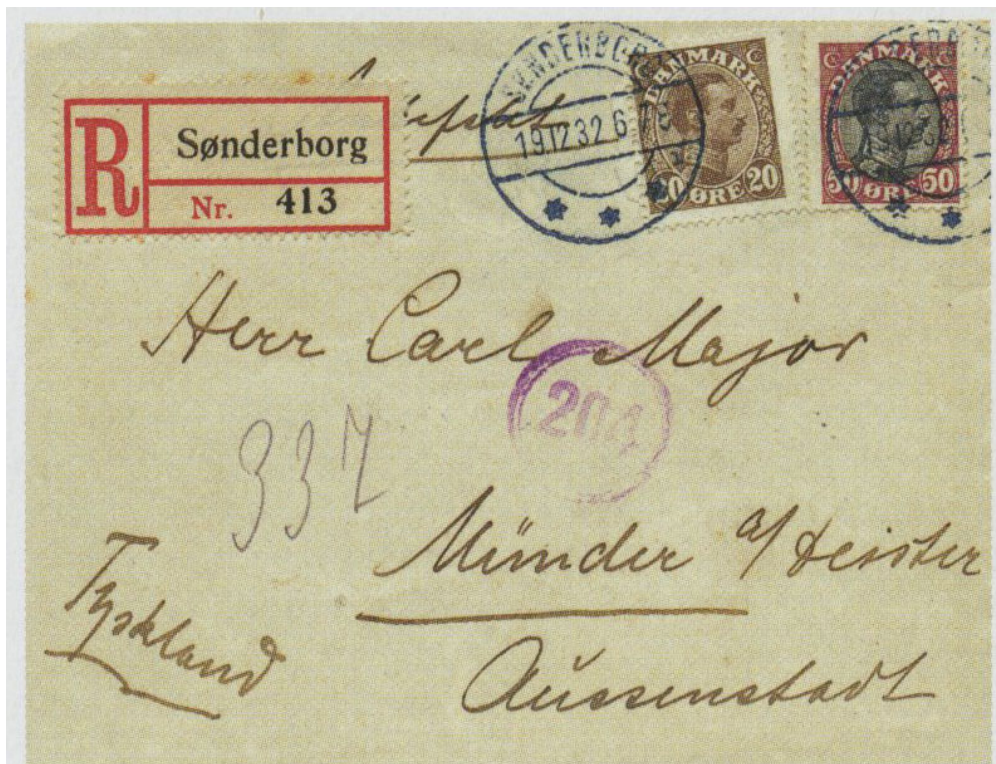 R Sønderborg
Nr. 413
SØNDERBORG
19.12.32.6
DANMARK
20 ØRE 20
DANMARK
50 ØRE 50
Herr Carl Major
204
337
Münder a/Deister
Tyskland
Aussenstadt